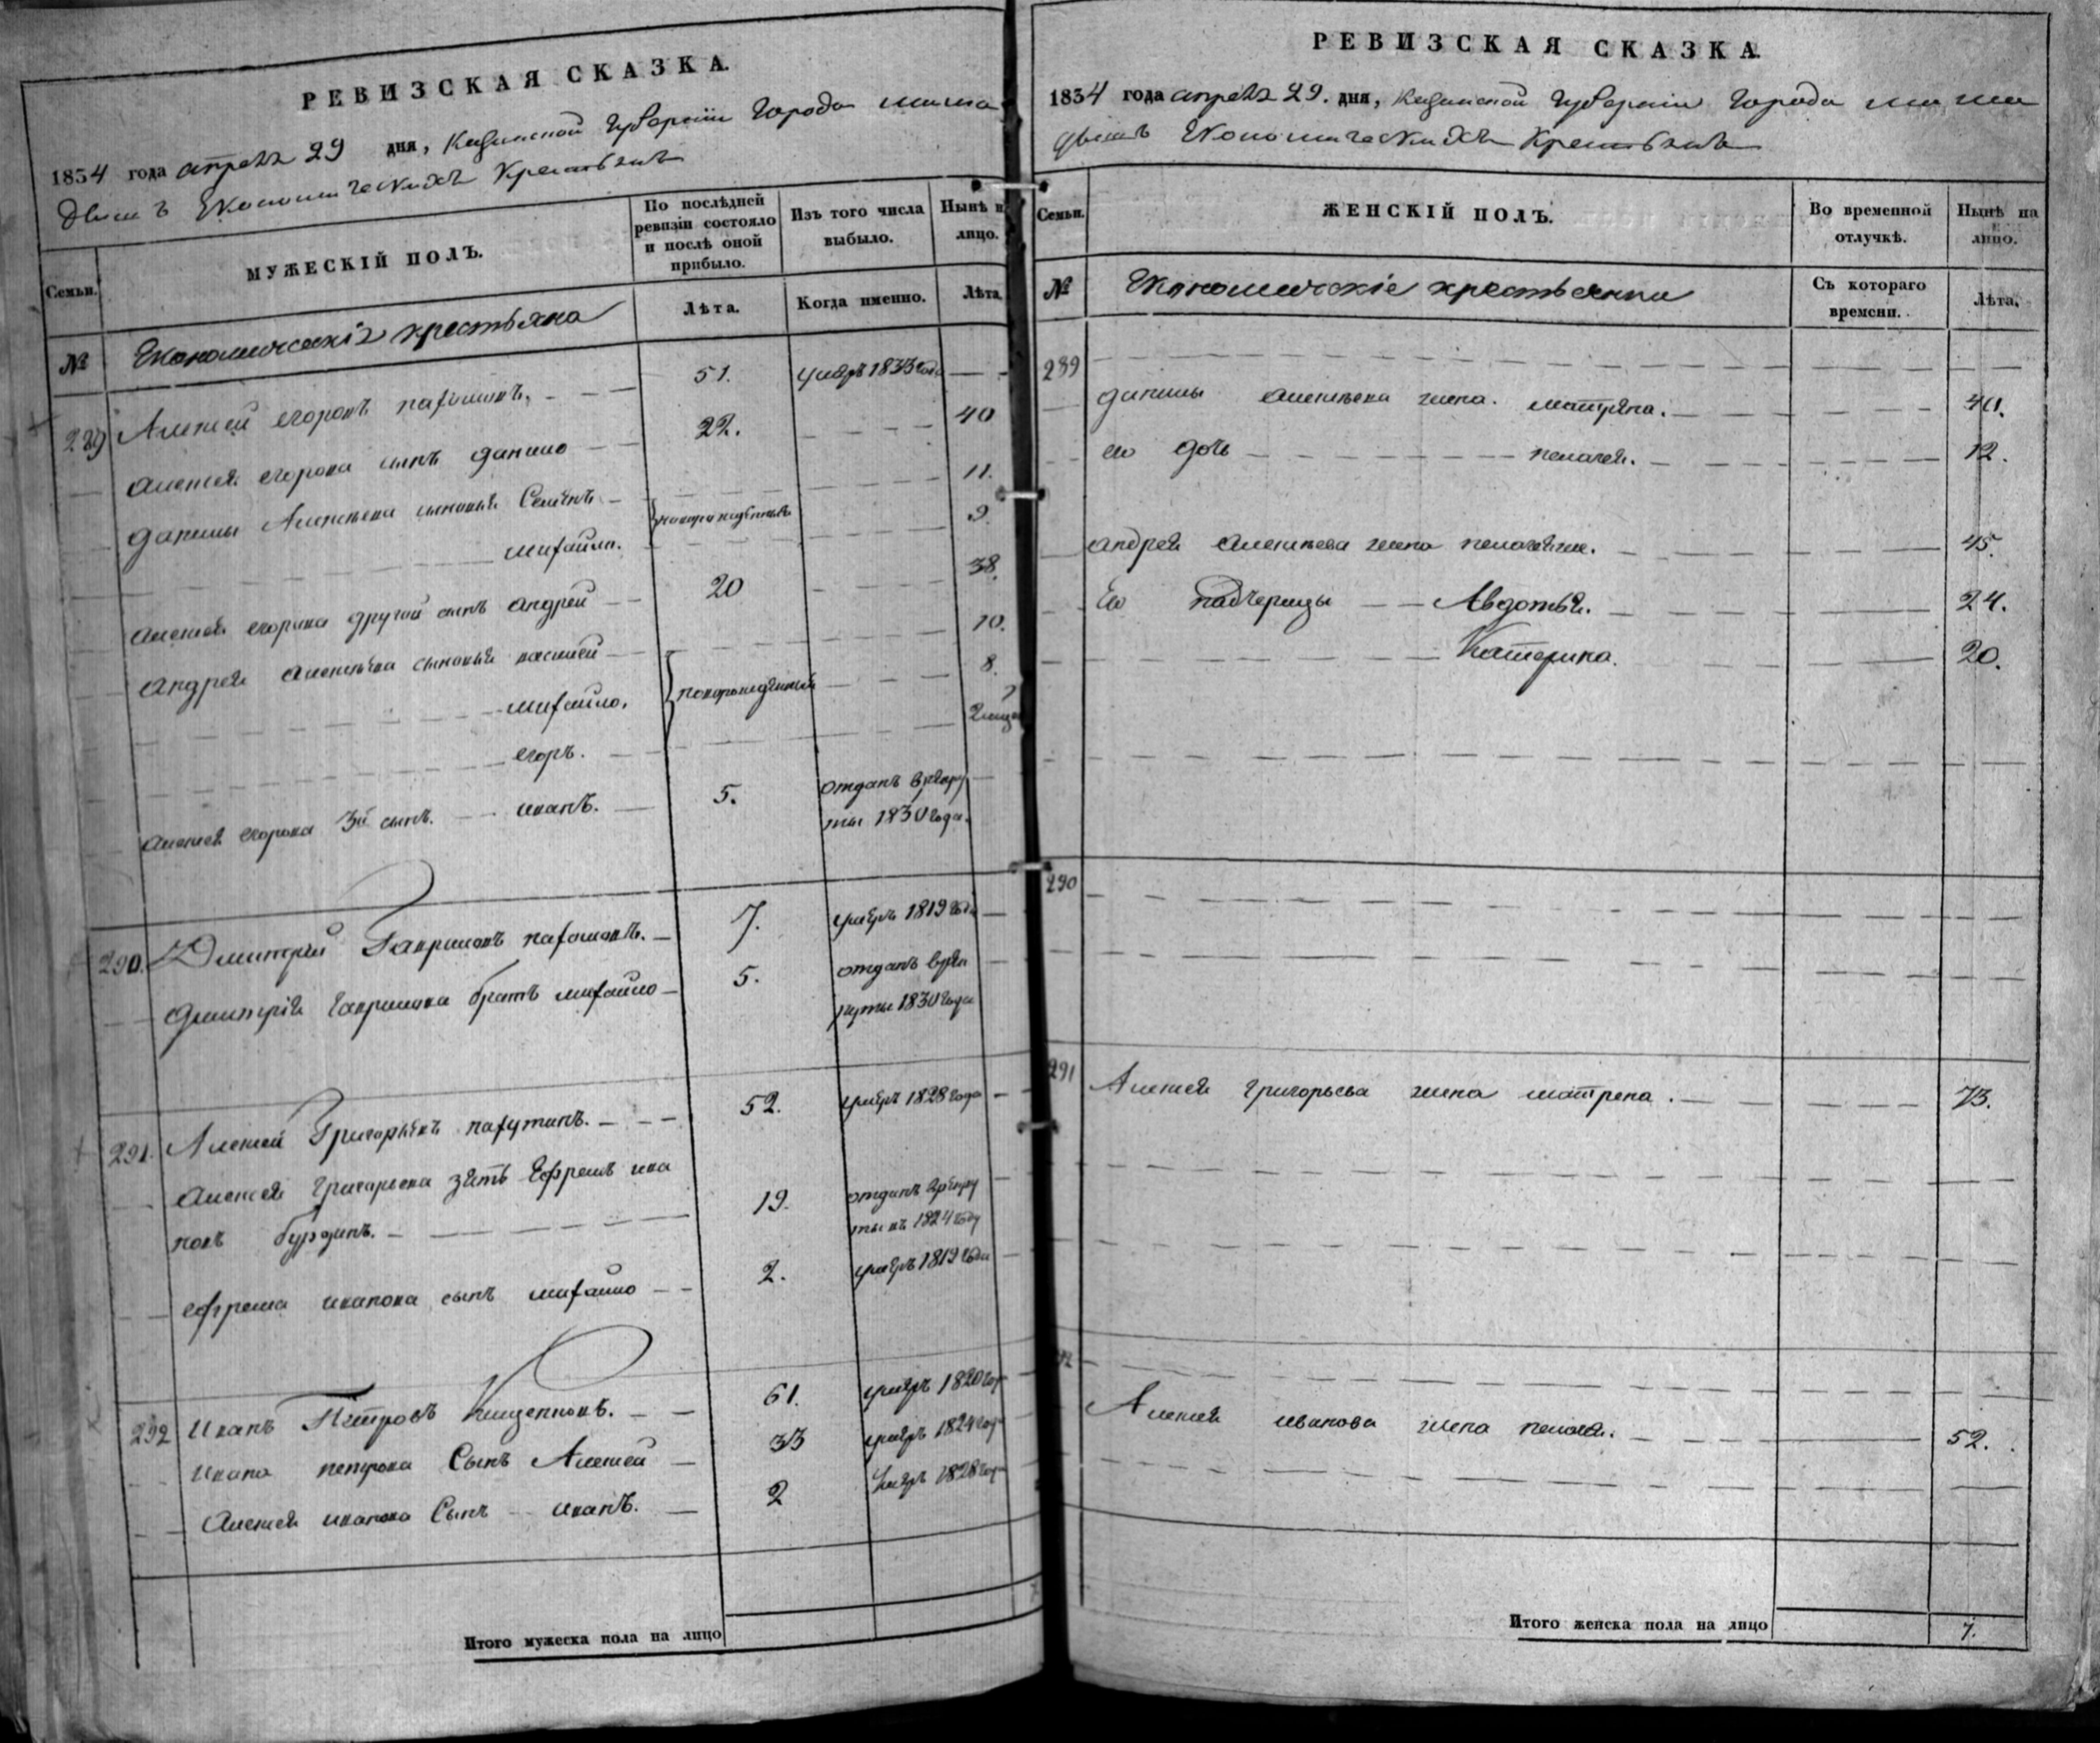 РЕВИЗСКАЯ СКАЗКА.
1834 года апреля 29 дня, Казанской Губернии Города мама
дыша Економическихъ Крестьянъ
Семьи.
МУЖЕСКІЙ ПОЛЪ.
По послѣдней
ревизіи состояло
и послѣ оной
прибыло.
Изъ того числа
выбыло.
Нынѣ н
лицо.
№
Економическія крестьяна
Лѣта.
Когда именно.
Лѣта
289 Алексей егоровъ пахомовъ. 51. умеръ 1833 года
алексея егорова сынъ данило 22. 40
данилы Алексеева сыновья Семёнъ 11.
новорожденные
михайло. 9.
алексея егорова другой сынъ андрей 20 38.
андрея алексеева сыновья василей 10.
михайло. новорожденныя 8.
егоръ. 2 меся
алексея егорова 3й сынъ. иванъ. 5. отданъ в рекру
ты 1830 года.
290. Дмитрий Гавриловъ пахомовъ. 7. умеръ 1819 года
дмитрия гаврилова братъ михайло 5. отданъ в рек
руты 1830 года
291. Алексей Григорьевъ пахутинъ. 52. умеръ 1828 года
алексея григорьева зять Ефремъ ива
новъ бурдинъ. 19. отданъ в рекру
ты въ 1824 году
ефрема иванова сынъ михайло 2. умеръ 1819 года
292 Иванъ Петровъ 61. умеръ 1820 год
Ивана петрова Сынъ Алексей 33 умеръ 1824 года
Алексея иванова Сынъ иванъ. 2 умеръ 1828 года
Итого мужеска пола на лицо
РЕВИЗСКАЯ СКАЗКА.
1834 года апреля 29. дня, Казанской Губернии Города мама
дышъ Економическихъ Крестьянъ
Семьи.
ЖЕНСКІЙ ПОЛЪ.
Во временной
отлучкѣ.
Нынѣ на
лицо.
№
Економическіе крестьянки
Съ котораго
времени.
Лѣта.
289
данилы алексеева жена. матрена. 40.
ево дочь пелагея. 12.
андрея алексеева жена пелагея. 45.
Ево падчерицы Авдотья. 24.
Катерина. 20.
290
291 Алексея григорьева жена матрена. 73.
Алексея иванова жена пелагея. 52.
Итого женска пола на лицо 7.